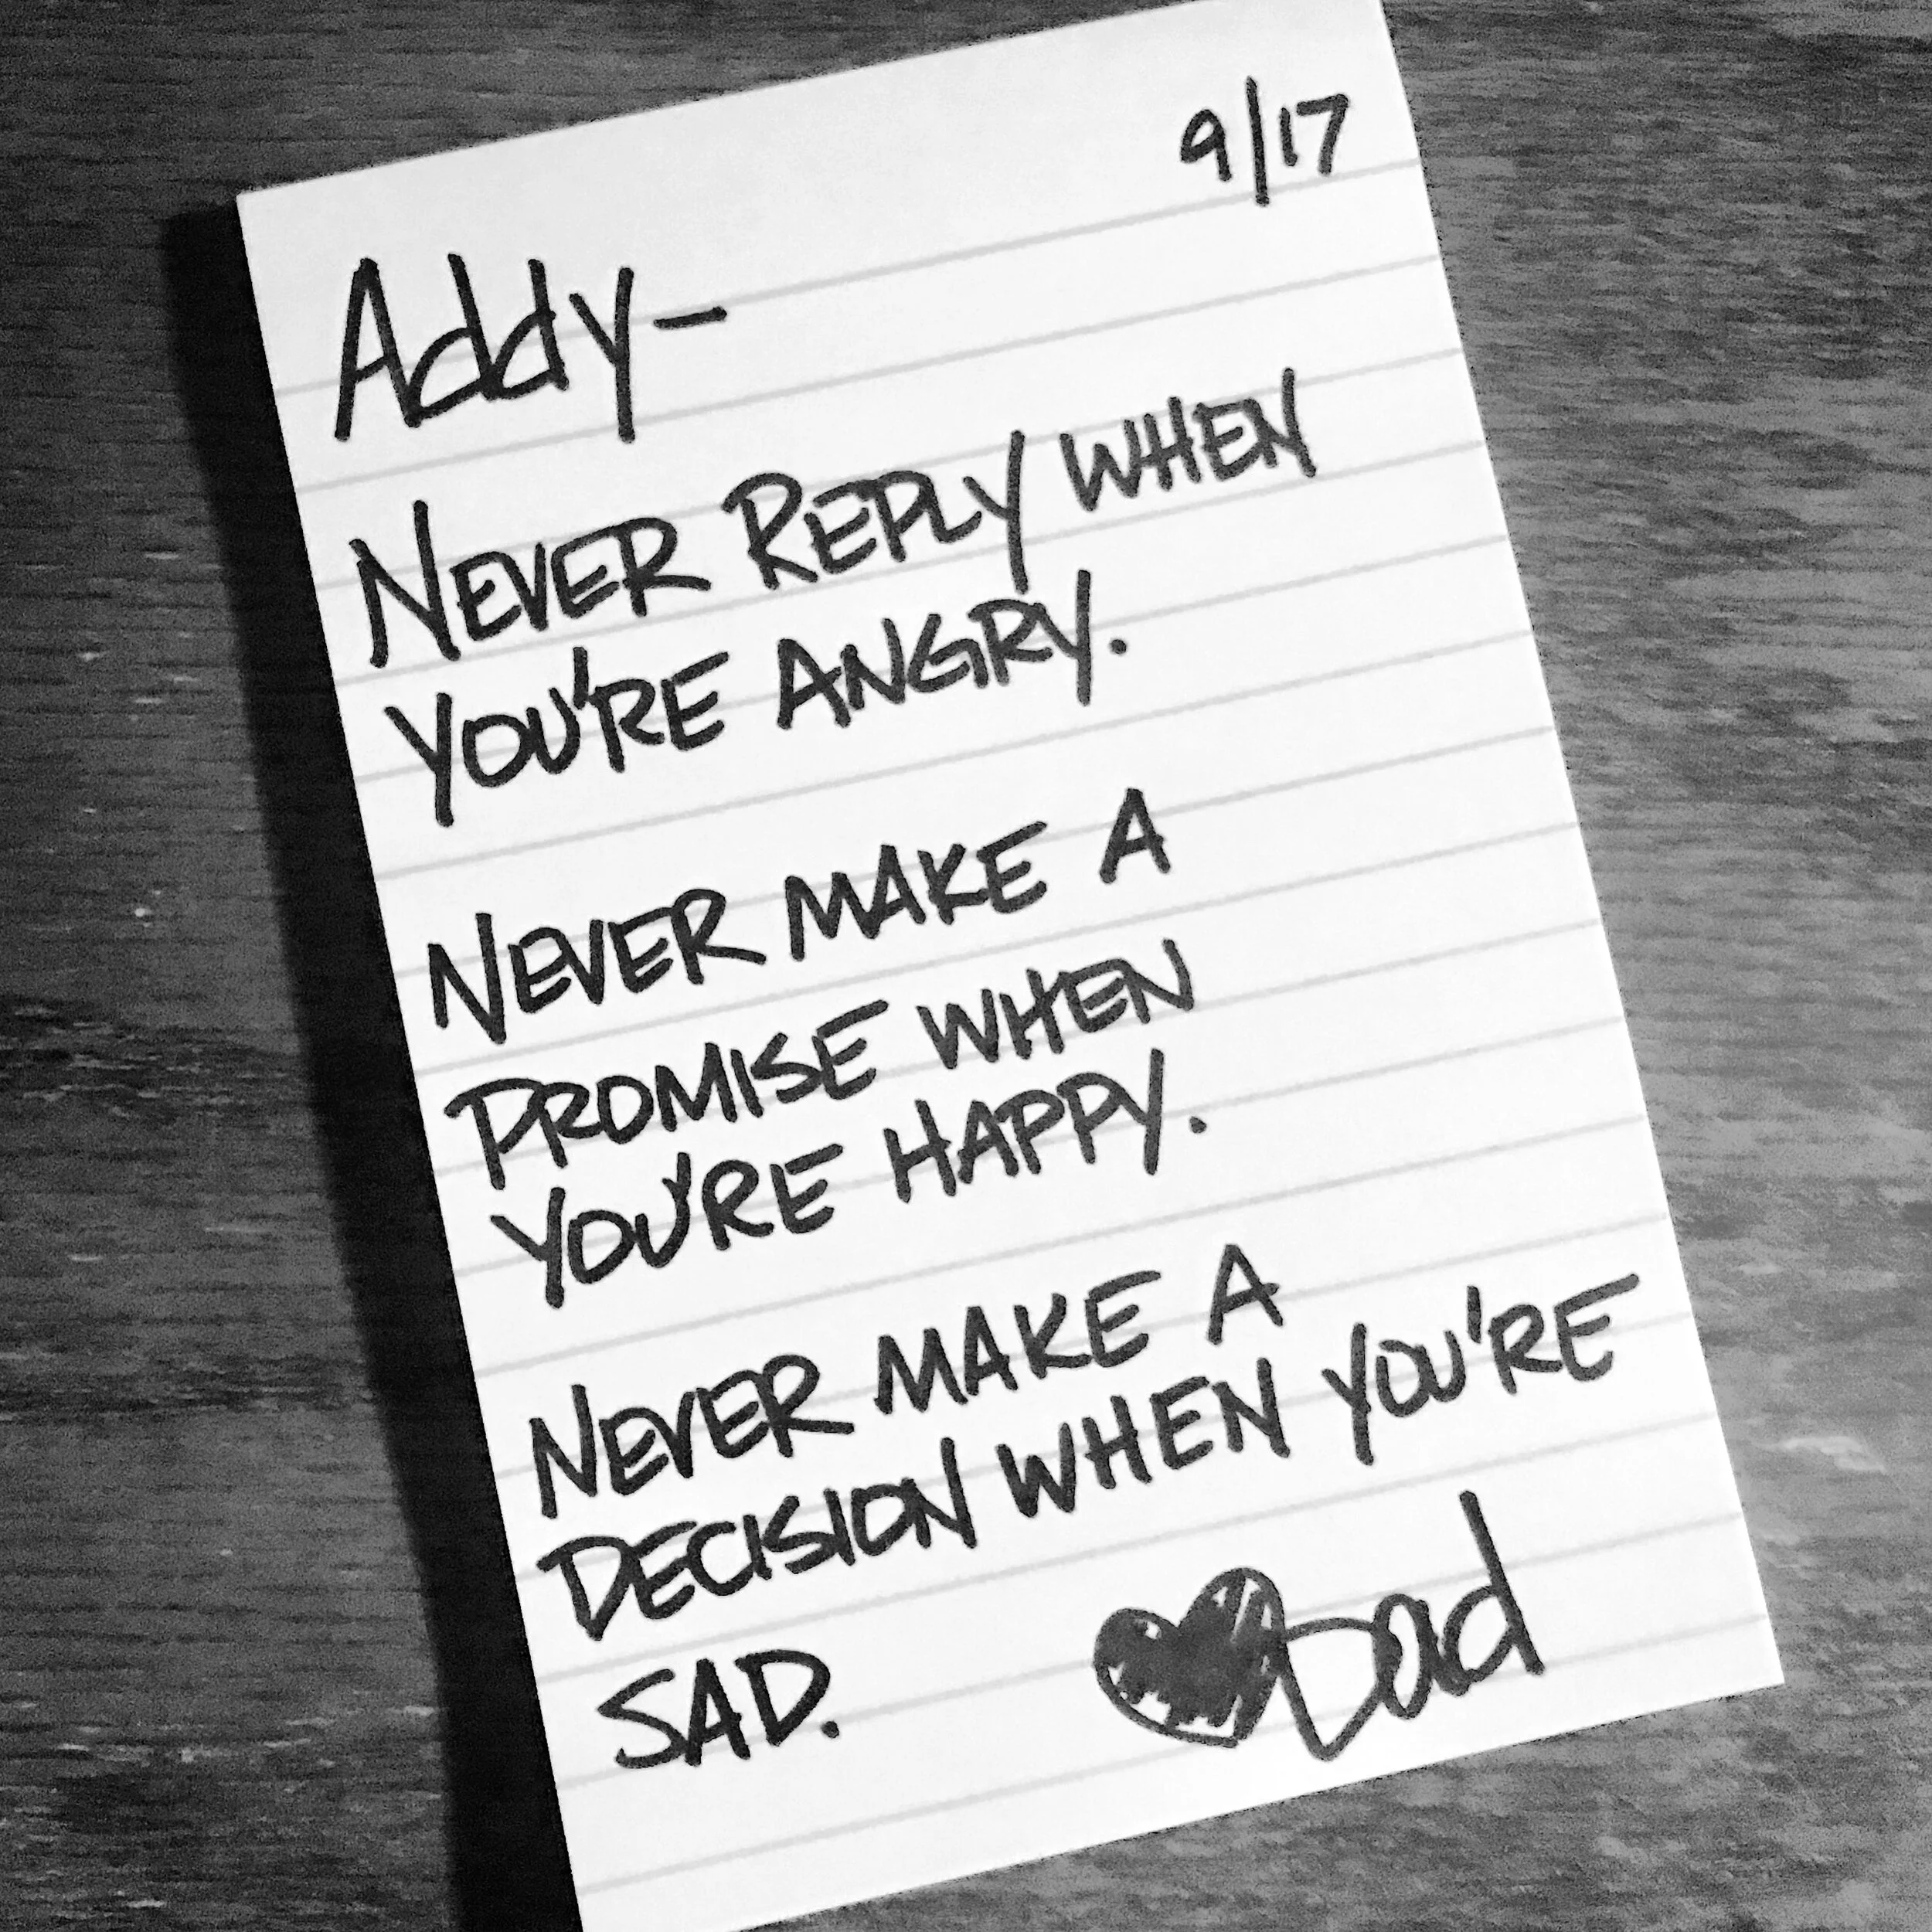 9/17
Addy-
NEVER REPLY WHEN
YOU'RE ANGRY.
NEVER MAKE A
PROMISE WHEN
YOU'RE HAPPY.
NEVER MAKE A
DECISION WHEN YOU'RE
SAD.
♥Dad